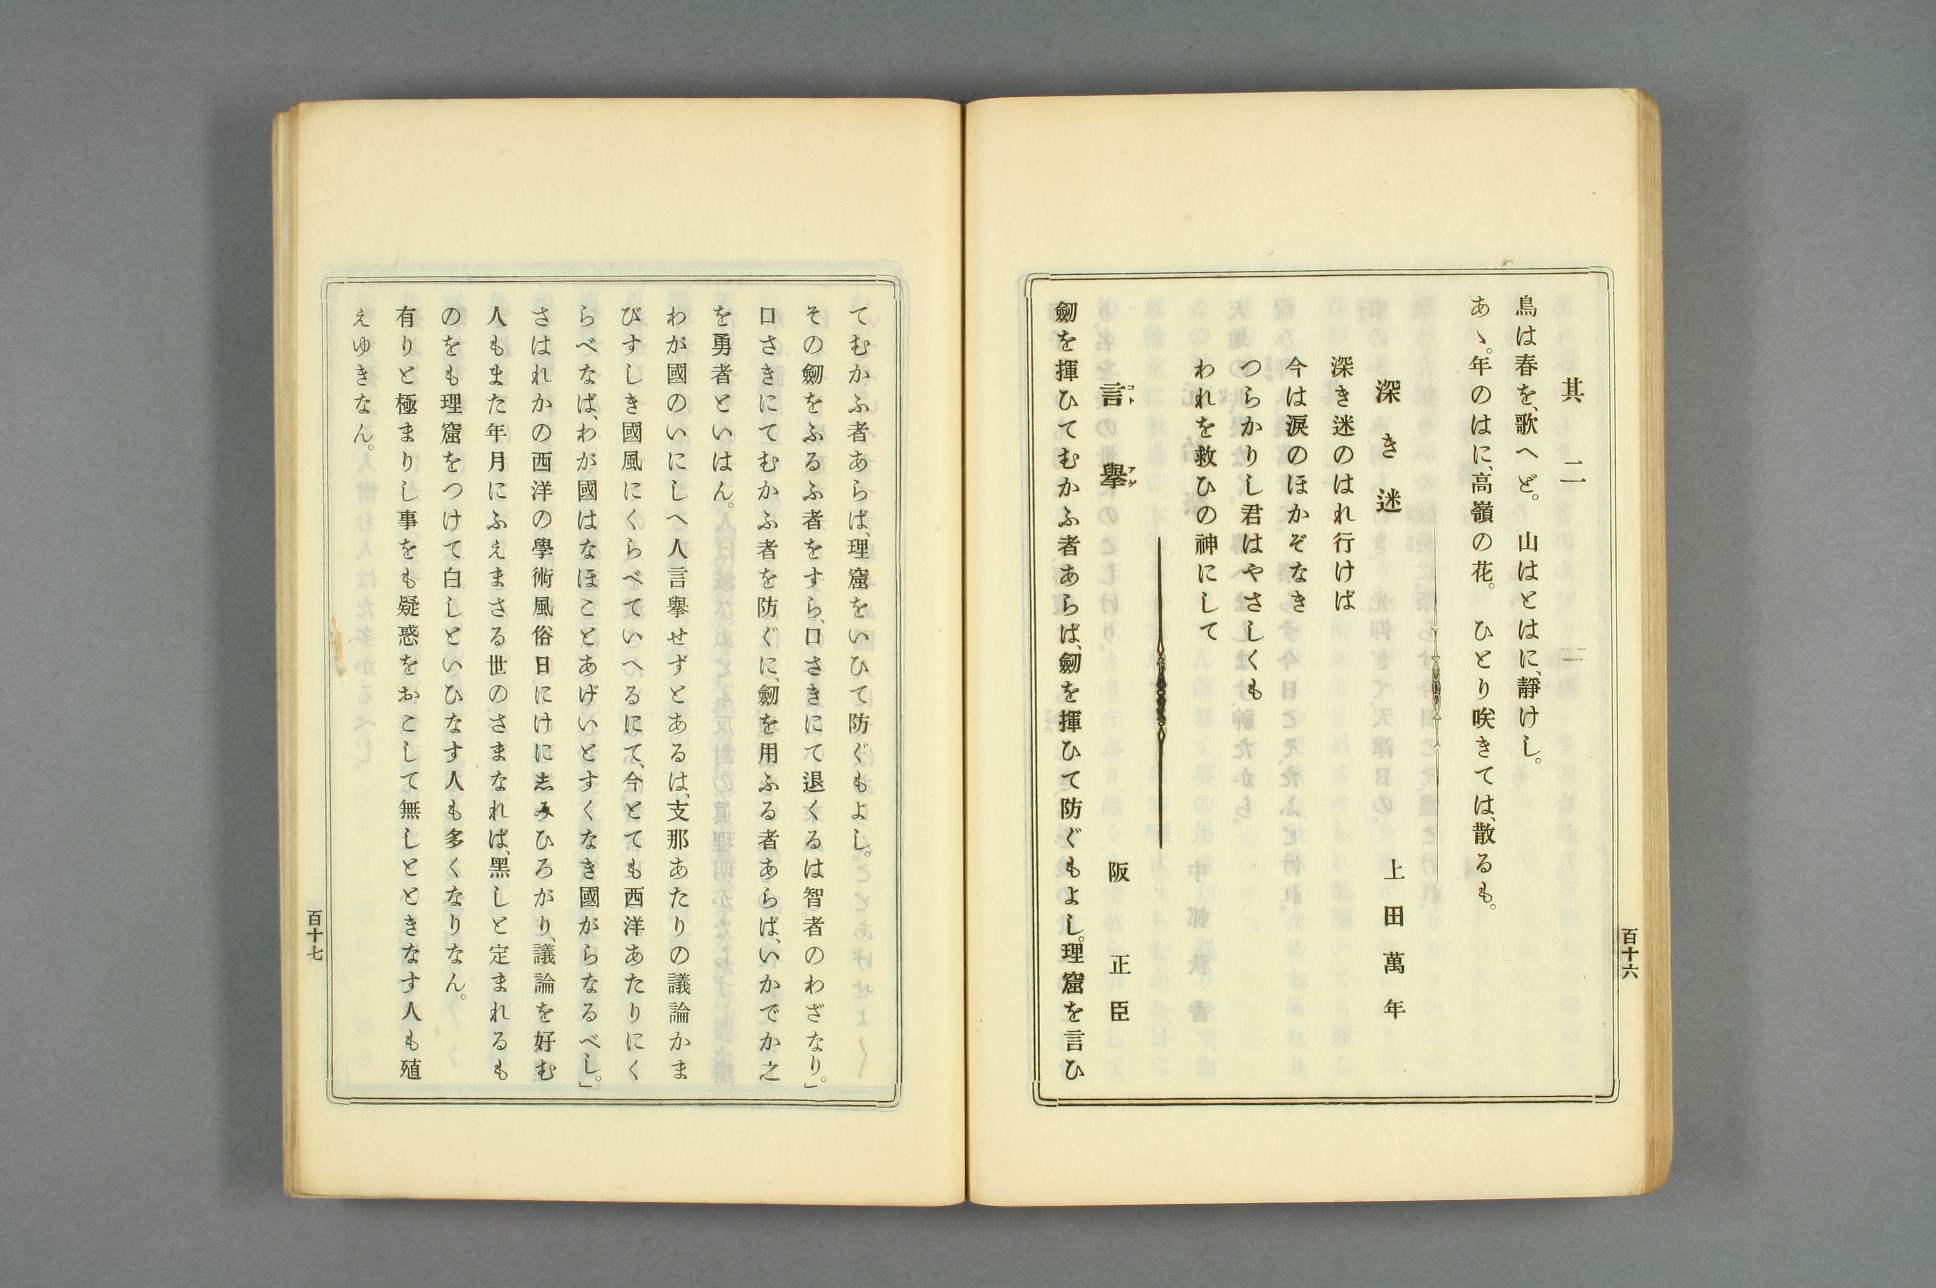 其二
鳥は春を、歌へど。　山はとはに、靜けし。
あゝ。年のはに、高嶺の花。　ひとり咲きては、散るも。
深き迷　上田萬年
深き迷のはれ行けば
今は涙のほかぞなき
つらかりし君はやさしくも
われを救ひの神にして
言擧　阪正臣
コトアゲ
劒を揮ひてむかふ者あらば、劒を揮ひて防ぐもよし。理窟を言ひ
百十六
てむかふ者あらば、理窟をいひて防ぐもよし。
その劒をふるふ者をすら、口さきにて退くるは智者のわざなり。」
口さきにてむかふ者を防ぐに、劒を用ふる者あらば、いかでか之
を勇者といはん。
わが國のいにしへ人言擧せずとあるは、支那あたりの議論かま
びすしき國風にくらべていへるにて、今とても西洋あたりにく
らべなば、わが國はなほことあげいとすくなき國がらなるべし。」
さはれかの西洋の學術風俗日にけに志みひろがり、議論を好む
人もまた年月にふえまさる世のさまなれば、黑しと定まれるも
のをも理窟をつけて白しといひなす人も多くなりなん。
有りと極まりし事をも疑惑をおこして無しとときなす人も殖
えゆきなん。
百十七